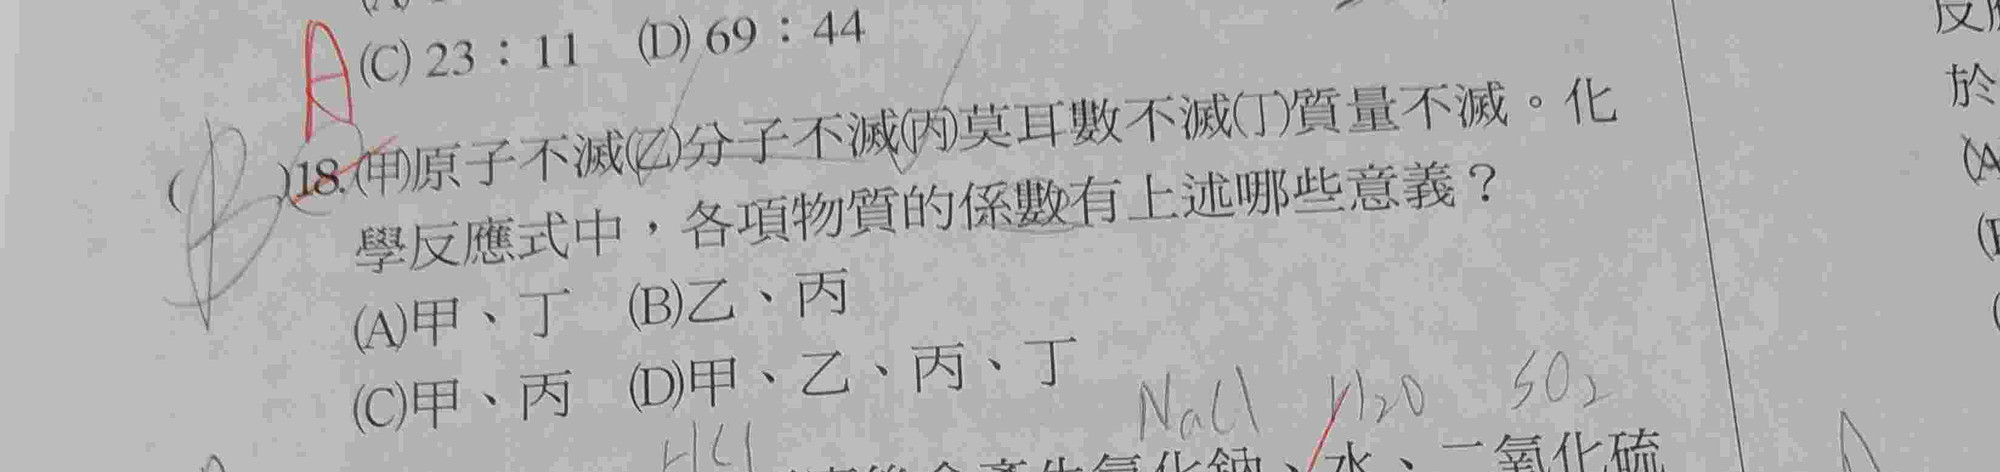 A
(C) 23：11　(D) 69：44
(B)18.(甲)原子不滅(乙)分子不滅(丙)莫耳數不滅(丁)質量不滅。化
學反應式中，各項物質的係數有上述哪些意義？
(A)甲、丁　(B)乙、丙
(C)甲、丙　(D)甲、乙、丙、丁
NaCl H2O SO2
HCl
氯化鈉、水、二氧化硫
反
於
(A